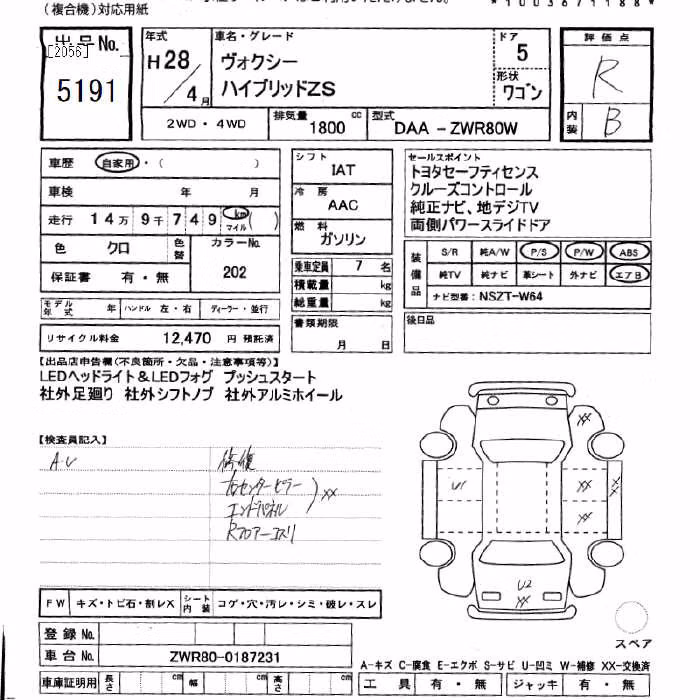 （複合機）対応用紙
*1003671188*
出品No.
[2056]
5191
年式
H28/4月
車名・グレード
ヴォクシー
ハイブリッドZS
ドア
5
形状
ワゴン
評価点
R
内装
B
2WD・4WD
排気量
1800 cc
型式
DAA-ZWR80W
車歴 自家用・（ ）
車検 年 月
走行 14万9千749 km マイル（ ）
色 クロ 色替 カラーNo.
202
保証書 有・無
モデル年式 年 ハンドル 左・右 ディーラー・並行
リサイクル料金 12,470 円 預託済
シフト
IAT
冷房
AAC
燃料
ガソリン
乗車定員 7 名
積載量 kg
総重量 kg
書類期限
月 日
セールスポイント
トヨタセーフティセンス
クルーズコントロール
純正ナビ、地デジTV
両側パワースライドドア
装備品
S/R 純A/W P/S P/W ABS
純TV 純ナビ 革シート 外ナビ エアB
ナビ型番：NSZT-W64
後日品
【出品店申告欄（不良箇所・欠品・注意事項等）】
LEDヘッドライト＆LEDフォグ プッシュスタート
社外足廻り 社外シフトノブ 社外アルミホイール
【検査員記入】
A・U
修復
右センターピラー
エンドパネル
XX
Rフロアーヨスリ
XX
U1
XX
XX
XX
U2
XX
スペア
FW キズ・トビ石・割レX シート内装 コゲ・穴・汚レ・シミ・破レ・スレ
登録No.
車台No. ZWR80-0187231
車庫証明用 長さ cm 幅 cm 高さ cm
A-キズ C-腐食 E-エクボ S-サビ U-凹ミ W-補修 XX-交換済
工具 有・無 ジャッキ 有・無